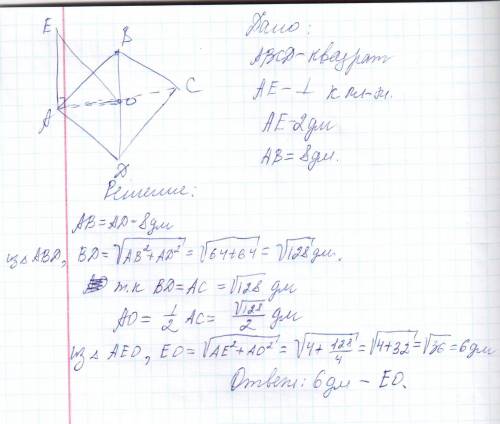 E
B
C
O
A
D
Дано:
ABCD - квадрат
AE - ⊥ к пл-ти.
AE - 2дм
AB = 8дм.
Решение:
AB = AD - 8дм
из △ ABD, BD = √(AB² + AD²) = √(64+64) = √128 дм.
т.к BD = AC = √128 дм
AO = 1/2 AC = √128/2 дм
из △ AEO, EO = √(AE² + AO²) = √(4 + 128/4) = √(4+32) = √36 = 6дм
Ответ: 6дм - EO.